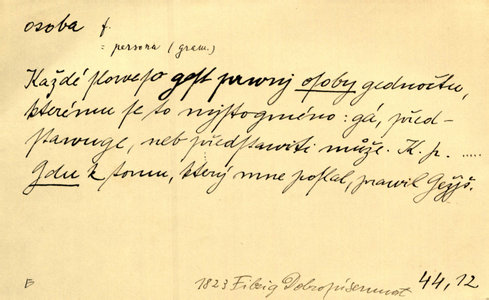 osoba f.
= persona (gram.)
Každé sloweso gest prwnj osoby gednočtu,
kterému se to mjstogméno: gá, před-
stawuge, neb představiti může. K. p. .....
Gdu k tomu, který mne poslal, prawil Gežjš.
1823 Fibig Dobropísemnost 44,12